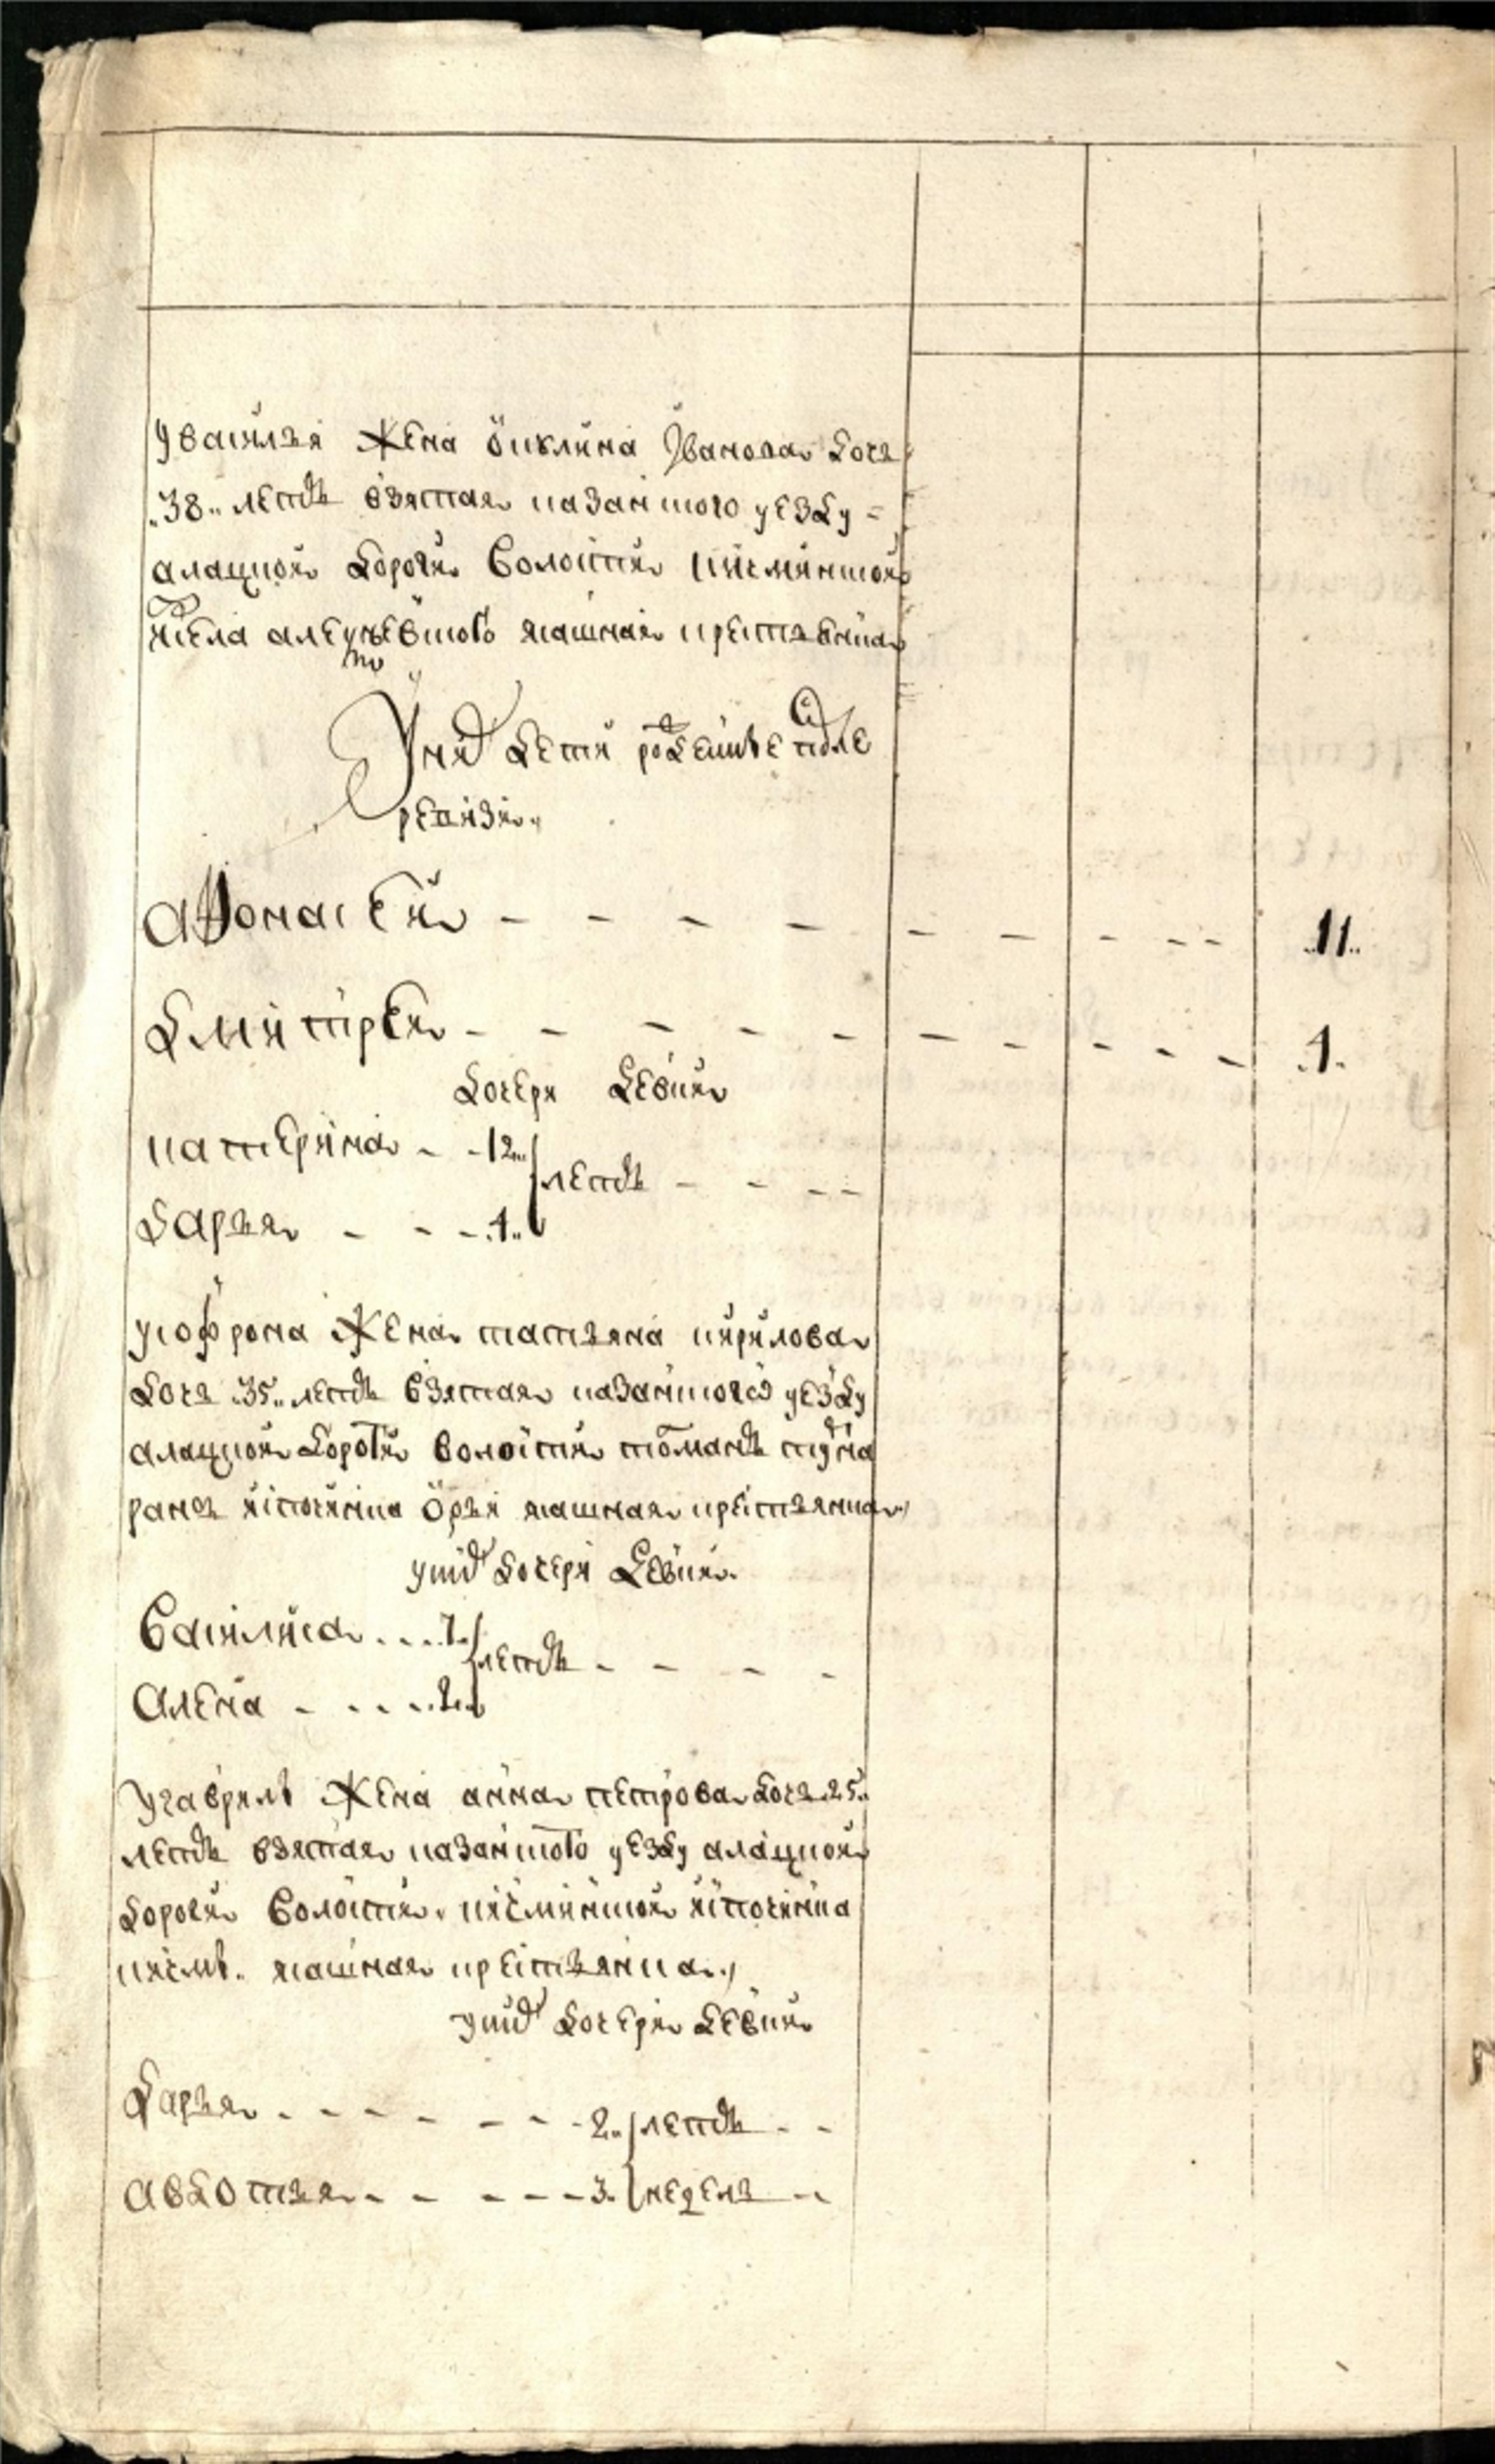 у василья жена окклина Иванова дочь
38 летъ взятая казанского уезду =
алацкой дороги волости кисминской
исела алекѣевского ясашная крестьянка
У них дети рожденные после
ревизии
Афонасей - - - - - - - - - 11
Дмитрей - - - - - - - - - 1
дочери девки
катерина - - 12
летъ - - - -
дарья - - - 1
у софрона жена татьяна кирилова
дочь 35 летъ взятая казанского уезду
алацкой дороги волости
ясашная крестьянка
у них дочери девки
василиса . . . 7
летъ - - - -
Алена - . . . 2
у гаврилы жена анна петрова дочь 25
летъ взятая казанского уезду алацкой
дороги волости кисминской ипочинка
кисмы ясашная крестьянка
у них дочери девки
дарья - - - - - - - 2 летъ - -
авдотья - - - - - - 3 недель -